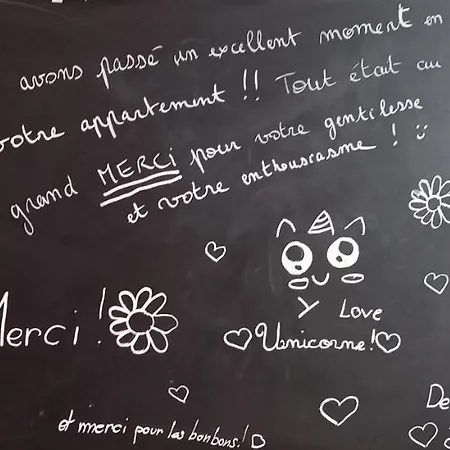 avons passé un excellent moment en
votre appartement !! Tout était au
grand MERCi pour votre gentilesse
et votre enthousiasme ! :)
Merci !
Y Love
Unicorne!
et merci pour les bonbons!
De